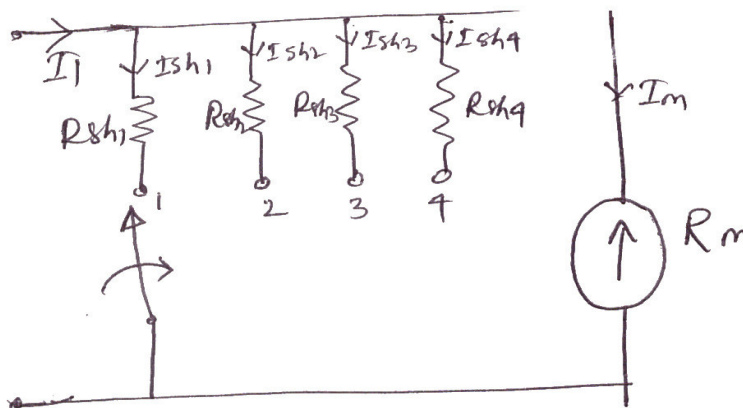 I1 Ish1 Ish2 Ish3 Ish4
Rsh1 Rsh2 Rsh3 Rsh4 Im
1 2 3 4
Rm